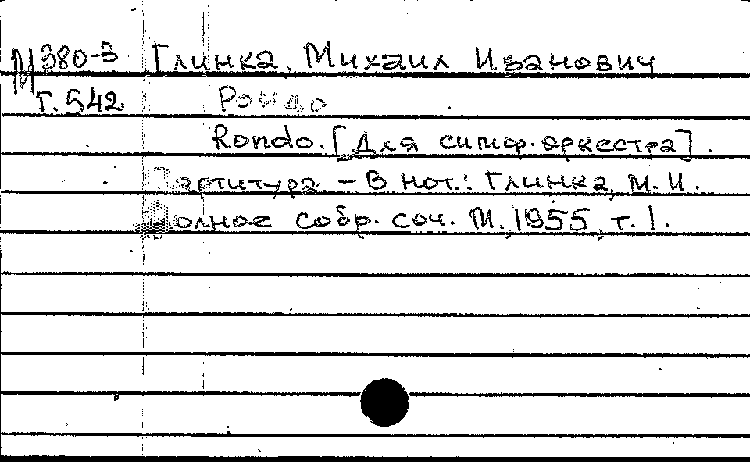 М380-3 Глинка, Михаил Иванович
Г.542 Рондо
Rondo. [Для симф. оркестра].
Партитура - В нот.: Глинка, М. И.
Полное собр. соч. М., 1955, т. 1.